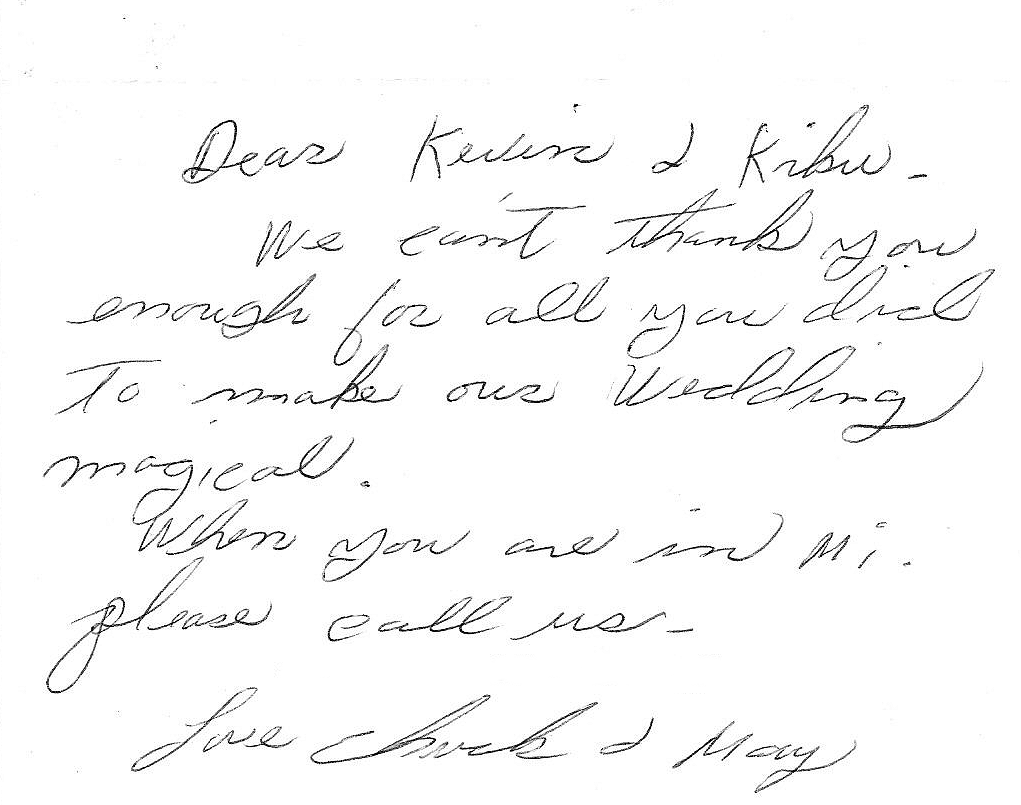 Dear Kevin & Kibu -
We can't thank you
enough for all you did
to make our Wedding
magical.
When you are in Mi.
please call us -
Love Chuck & Mary